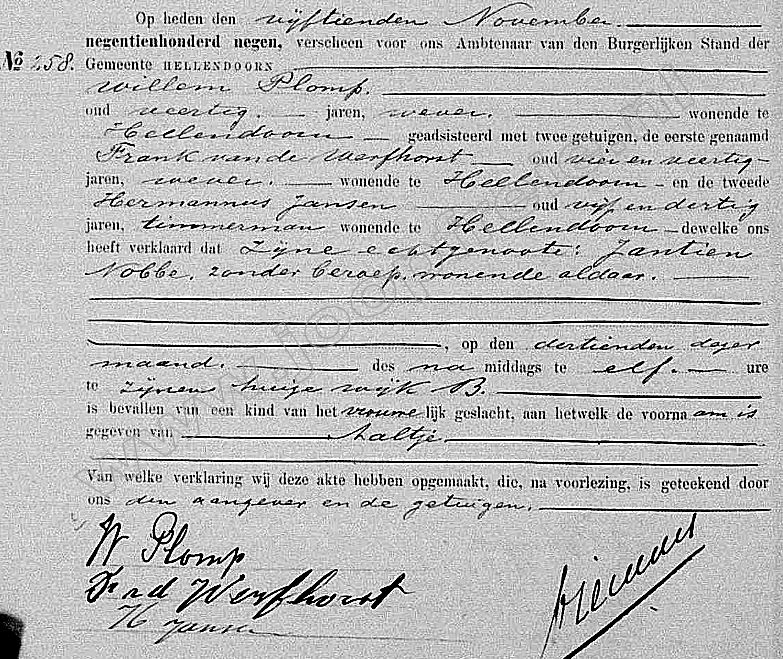 Op heden den vijftienden November.
negentienhonderd negen, verscheen voor ons Ambtenaar van den Burgerlijken Stand der
No 258. Gemeente HELLENDOORN
Willem Plomp.
oud veertig. jaren, wever. wonende te
Hellendoorn geadsisteerd met twee getuigen, de eerste genaamd
Frank van de Werfhorst oud vier en veertig
jaren, wever. wonende te Hellendoorn en de tweede
Hermannus Jansen oud vijf en dertig
jaren, timmerman wonende te Hellendoorn dewelke ons
heeft verklaard dat Zijne echtgenoote: Jantien
Nobbe. zonder beroep. wonende aldaar.
, op den dertienden dezer
maand. des na middags te elf. ure
te Zijnen huize wijk B.
is bevallen van een kind van het vrouwelijk geslacht, aan hetwelk de voornaam is
gegeven van Aaltje
Van welke verklaring wij deze akte hebben opgemaakt, die, na voorlezing, is geteekend door
ons den aangever en de getuigen.
W Plomp
F v d Werfhorst
H Jansen